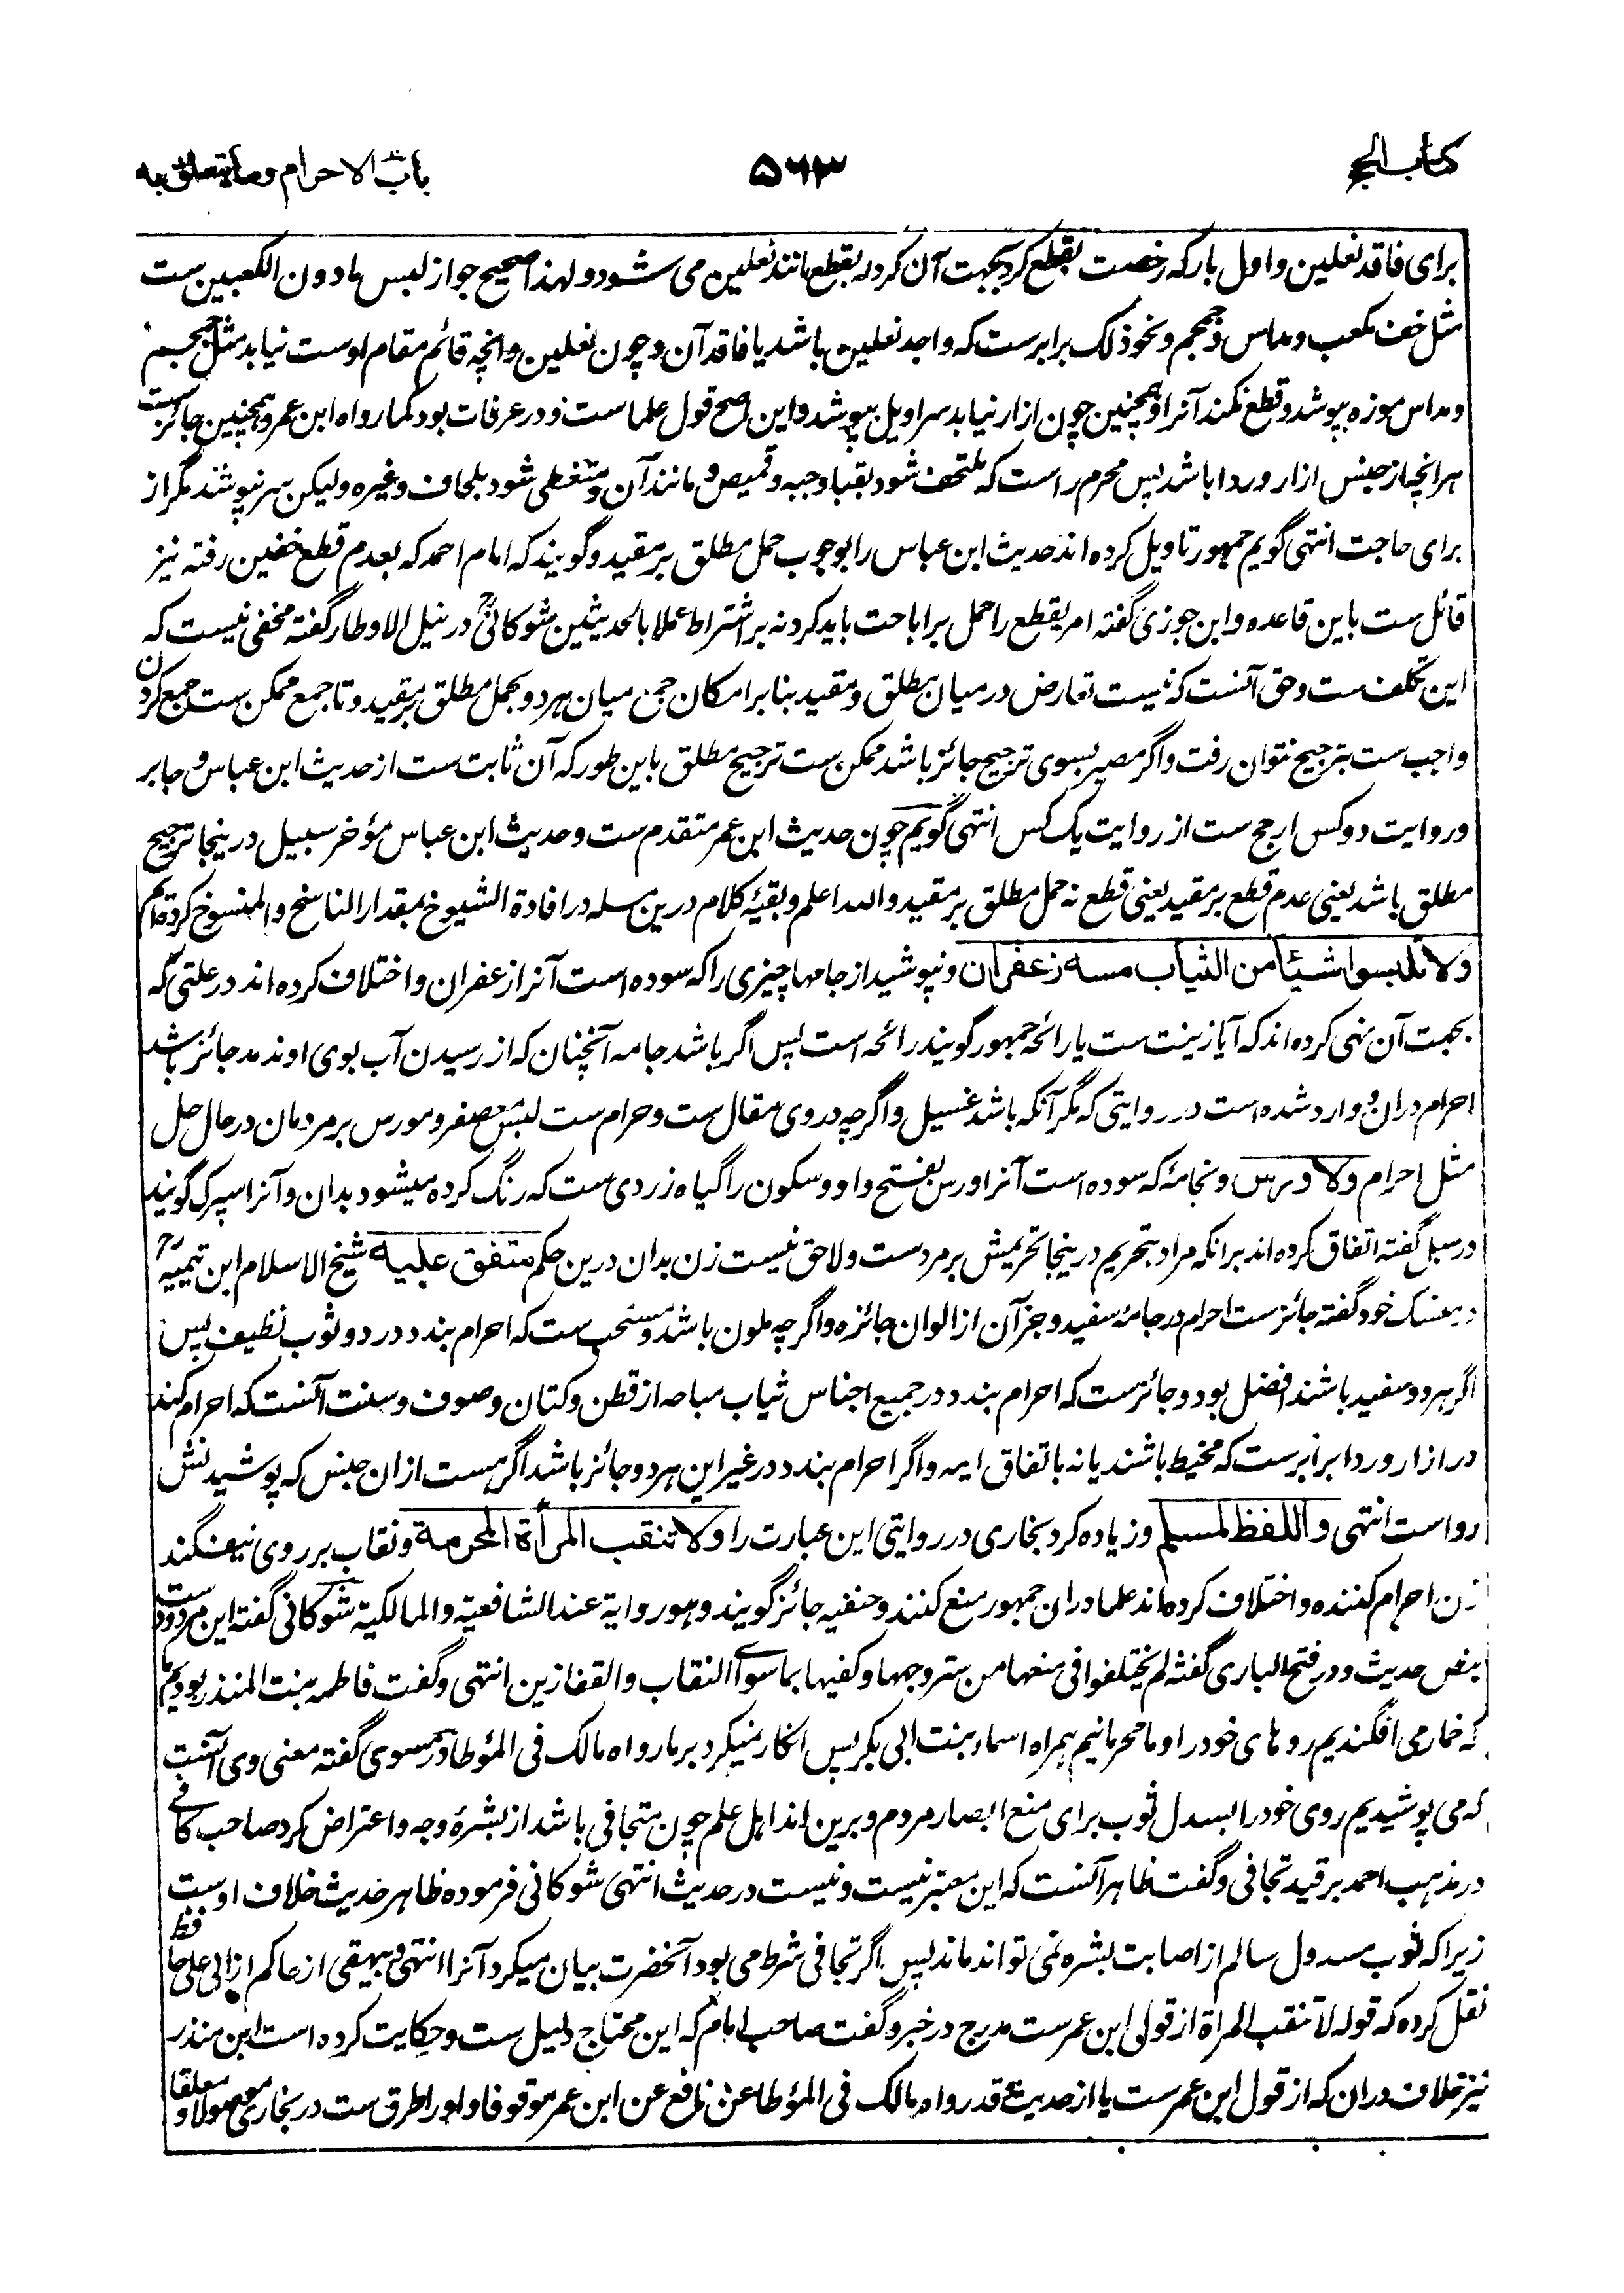 کتاب الحج
۵۶۳
باب الاحرام وما یتعلق به
برای فاقد نعلین و اول بار که رخصت بقطع کرد بجهت آن کرد که بقطع مانند نعلین می شود و لهذا صحیح جواز لبس ما دون الکعبین ست
مثل خف مکعب و مداس و جمجم و نحو ذلک برابرست که واجد نعلین باشد یا فاقد آن و چون نعلین و انچه قائم مقام اوست نیابد مثل جمجم
و مداس موزه بپوشد و قطع نکند آنرا و همچنین چون ازار نیابد سراویل بپوشد و این اصح قول علماست و در عرفات بود کما رواه ابن عمر و همچنین جائزست
هر انچه از جنس ازار و ردا باشد پس محرم راست که ملتحف شود بقبا و جبه و قمیص و مانند آن و متغطی شود بلحاف و غیره ولیکن سر نپوشد مگر از
برای حاجت انتهی گویم جمهور تاویل کرده اند حدیث ابن عباس را بوجوب حمل مطلق بر مقید و گویند که امام احمد که بعدم قطع خفین رفته نیز
قائل ست باین قاعده و ابن جوزی گفته امر بقطع را حمل بر اباحت باید کرد نه بر اشتراط عملا بالحدیثین شوکانی رح در نیل الاوطار گفته مخفی نیست که
این تکلف ست و حق آنست که نیست تعارض در میان مطلق و مقید بنا بر امکان جمع میان هر دو بحمل مطلق بر مقید و تا جمع ممکن ست جمع کردن
واجب ست بترجیح نتوان رفت و اگر مصیر بسوی ترجیح جائز باشد ممکن ست ترجیح مطلق باین طور که آن ثابت ست از حدیث ابن عباس و جابر
و روایت دو کس ارجح ست از روایت یک کس انتهی گویم چون حدیث ابن عمر متقدم ست و حدیث ابن عباس مؤخر سبیل درینجا ترجیح
مطلق باشد یعنی عدم قطع بر مقید یعنی قطع نه حمل مطلق بر مقید و الله اعلم و بقیۀ کلام درین مسله در افادة الشیوخ بمقدار الناسخ والمنسوخ کرده ایم
ولا تلبسوا شیئا من الثیاب مسه زعفران و نپوشید از جامها چیزی را که سوده است آنرا زعفران و اختلاف کرده اند در علتی که
بجهت آن نهی کرده اند که آیا زینت ست یا رائحه جمهور گویند رائحه است پس اگر باشد جامه آنچنان که از رسیدن آب بوی او ندمد جائز باشد
احرام دران و وارد شده است در روایتی که مگر آنکه باشد غسیل و اگرچه در وی مقال ست و حرام ست لبس معصفر و مورس بر مردمان در حال حل
مثل احرام ولا ورس و نجامۀ که سوده است آنرا ورس بفتح واو و سکون را گیاه زردی ست که رنگ کرده میشود بدان و آنرا اسپرک گویند
در سبل گفته اتفاق کرده اند برانکه مراد بتحریم درینجا تحریمش بر مردست و لاحق نیست زن بدان درین حکم متفق علیه شیخ الاسلام ابن تیمیه رح
در منسک خود گفته جائز ست احرام در جامۀ سفید و جز آن از الوان جائزه و اگرچه ملون باشد و مستحب ست که احرام بندد در دو ثوب نظیف پس
اگر هر دو سفید باشند افضل بود و جائزست که احرام بندد در جمیع اجناس ثیاب مباحه از قطن و کتان و صوف و سنت آنست که احرام کند
در ازار و ردا برابرست که مخیط باشند یا نه باتفاق ایمه و اگر احرام بندد در غیر این هر دو جائز باشد اگر هست ازان جنس که پوشیدنش
رواست انتهی واللفظ لمسلم و زیاده کرد بخاری در روایتی این عبارت را ولا تنقب المرأة المحرمة و نقاب بر روی نیفگند
زن احرام کننده و اختلاف کرده اند علما دران جمهور منع کنند و حنفیه جائز گویند و هو روایة عند الشافعیة والمالکیة شوکانی گفته این مردودست
بنص حدیث و در فتح الباری گفته لم یختلفوا فی منعها من ستر وجهها و کفیها بما سوی النقاب والقفازین انتهی و گفت فاطمه بنت المنذر بودیم ما
که خمار می افگندیم روهای خود را و ما محرمانیم همراه اسماء بنت ابی بکر پس انکار نمیکرد بر ما رواه مالک فی المؤطا و در مسوی گفته معنی وی آنست
که می پوشیدیم روی خود را بسدل ثوب برای منع ابصار مردم و برین اند اهل علم چون متجافی باشد از بشرۀ وجه و اعتراض کرد صاحب کافی
در مذهب احمد بر قید تجافی و گفت ظاهر آنست که این معتبر نیست و نیست در حدیث انتهی شوکانی فرموده ظاهر حدیث خلاف اوست
زیرا که ثوب مسدول سالم از اصابت بشره نمی تواند ماند پس اگر تجافی شرط می بود آنحضرت بیان میکرد آنرا انتهی و بیهقی از حاکم از ابی علی حافظ
نقل کرده که قوله لا تنقب المراة از قول ابن عمرست مدرج در خبر و گفت صاحب امام که این محتاج دلیل ست و حکایت کرده است ابن منذر
نیز خلاف دران که از قول ابن عمرست یا از حدیث و قد رواه مالک فی المؤطا عن نافع عن ابن عمر موقوفا و او را طرق ست در بخاری موصولا و معلقا